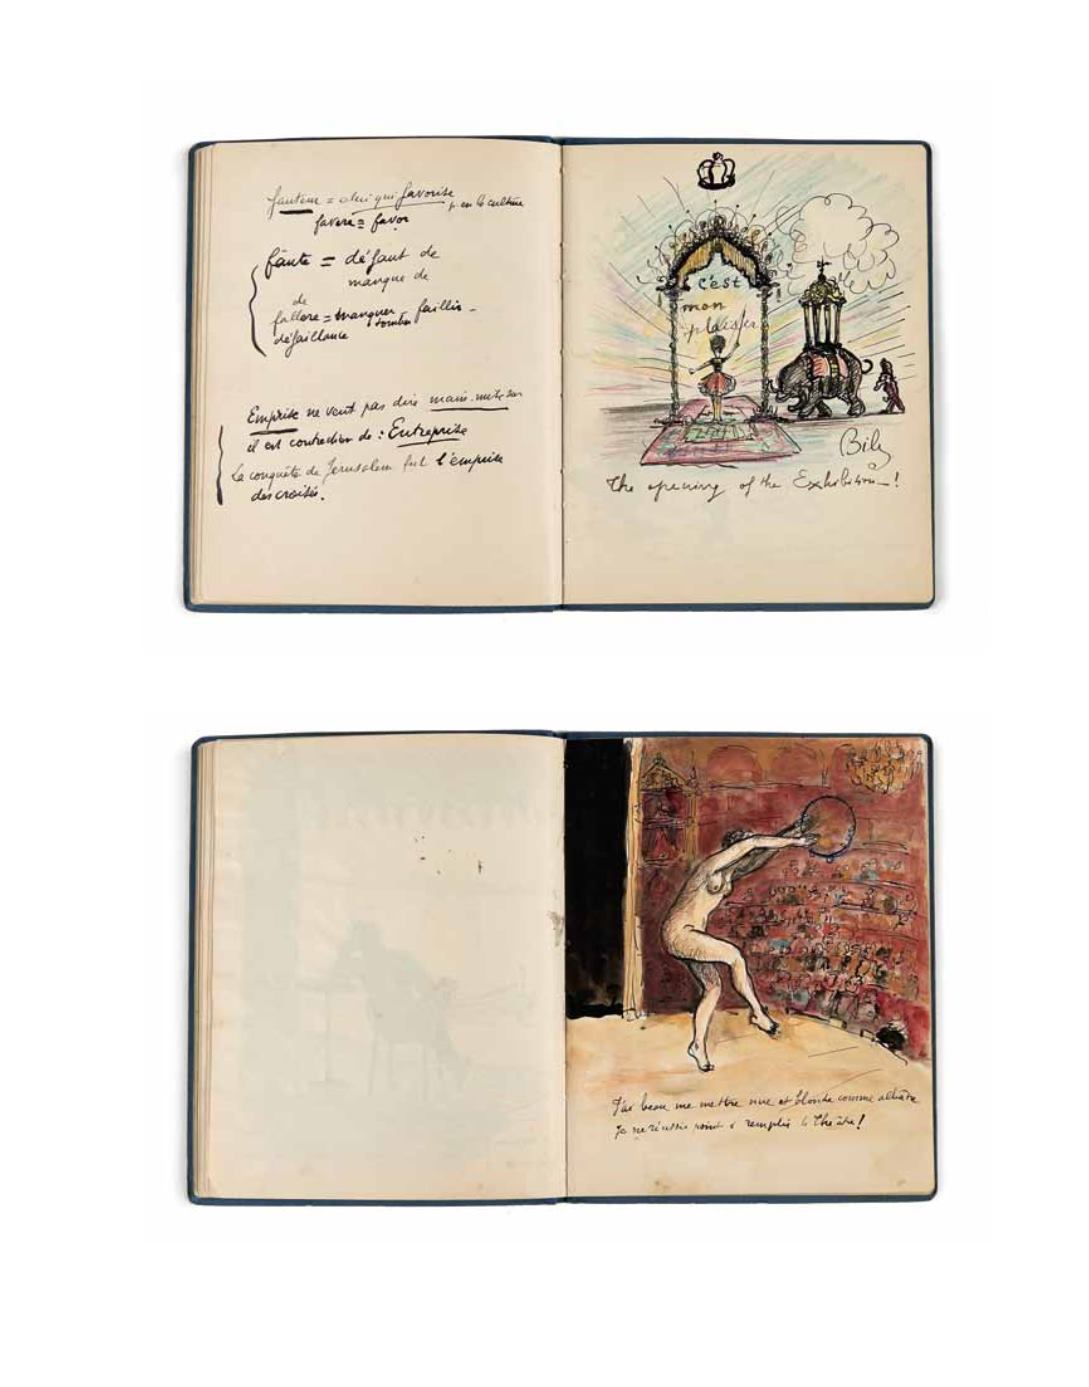 fauteur = celui qui favorise
favere = favor
p. ex. la culture
faute = défaut de
manque de
de
fallere = manquer faillir -
tomber
défaillance
Emprise ne veut pas dire main-mise sur
il est contraction de : Entreprise
La conquête de Jerusalem fut l'emprise
des croisés.
c'est
mon
plaisir
The opening of the Exhibition_!
J'ai beau me mettre nue et blonde comme
Je ne réussis point à remplir le théâtre!